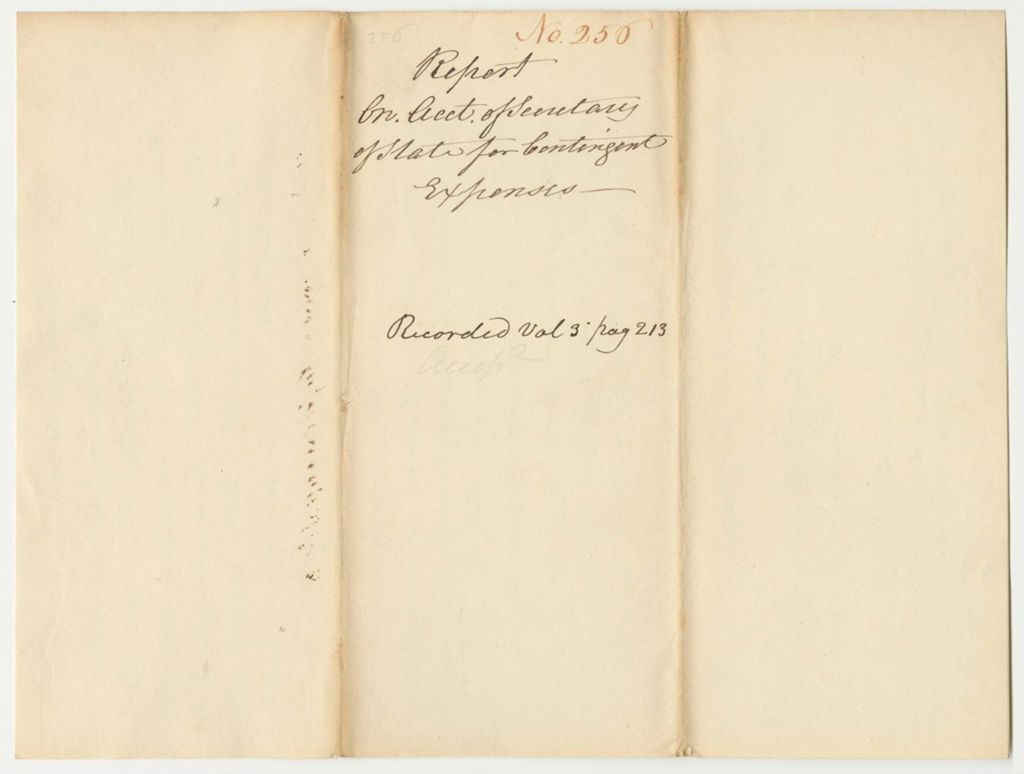 No. 256
256
Report
On. Acct. of Secretary
of State for Contingent
Expenses —
Recorded Vol 3 pag 213